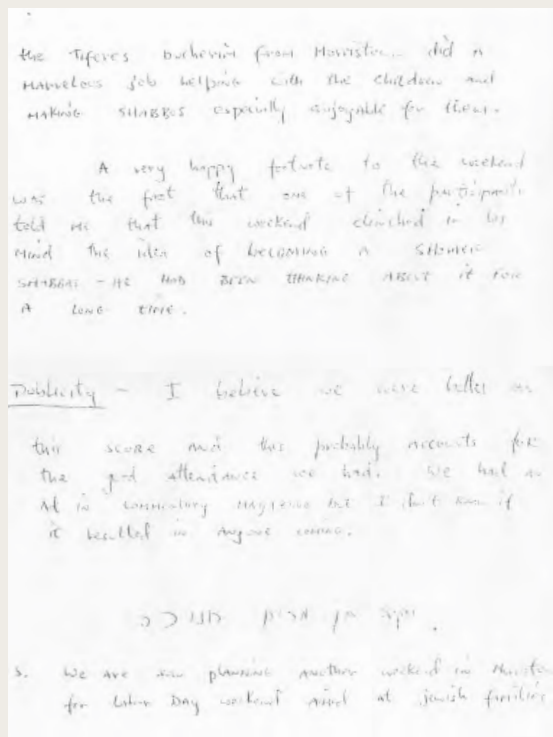 the Tiferes bucherim from Morristown did a
marvelous job helping with the children and
making SHABBOS especially enjoyable for them.
A very happy to the weekend
was the fact that one of the participants
told me that this weekend clinched in his
mind the idea of becoming a SHOMER
SHABBAS - HE HAD BEEN THINKING ABOUT it for
A LONG TIME.
Publicity - I believe we were better on
this score and this probably accounts for
the good attendance we had. We had an
Ad in Commentary Magazine but I don't know if
it resulted in anyone coming.
בן
We are now planning another weekend in
for Labor Day weekend aimed at jewish families